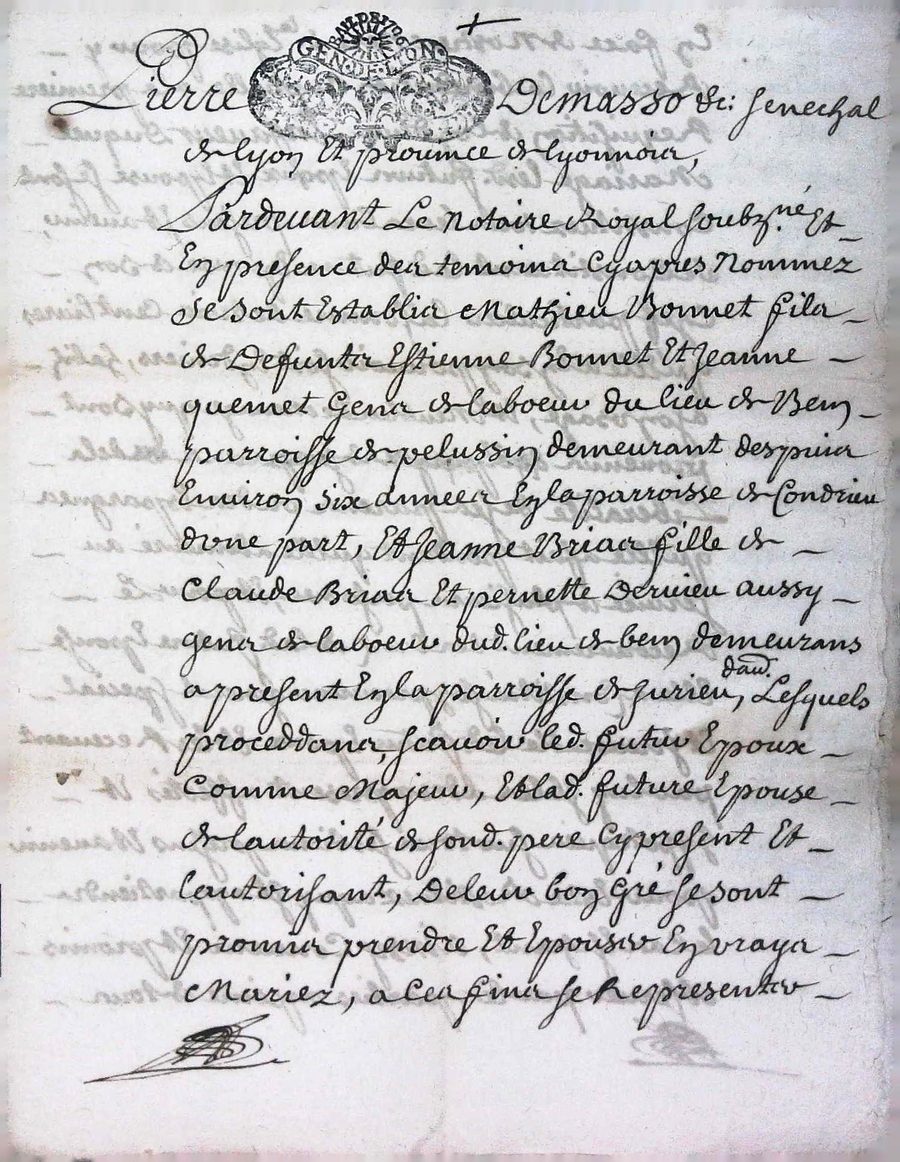 GEN·DE·LYON·
Pierre Demasso &c: senechal
de lyon Et prouince de lyonnois,
Pardeuant Le Notaire Royal soubz.né Et
En presence des temoins Cyapres Nommez
Se sont Establis Mathieu Bonnet fils
de Defunts Estienne Bonnet Et Jeanne
quemet Gens de labeur du lieu de Bem
parroisse de pelussin demeurant despuis
Enuiron six années En la parroisse de Condrieu
d'vne part, Et Jeanne Brias fille de
Claude Brias Et pernette Deruieu aussy
gens de labeur dud. lieu de bem demeurans
daud.
apresent En la parroisse de Jurieu, Lesquels
proceddans, scauoir led. futur Epoux
Comme Majeur, Et lad. future Epouse
de lautorité de sond. pere Cy present Et
lautorisant, De leur bon Gré se sont
promis prendre Et Epouser En vrays
Mariez, a Ces fins se Representer